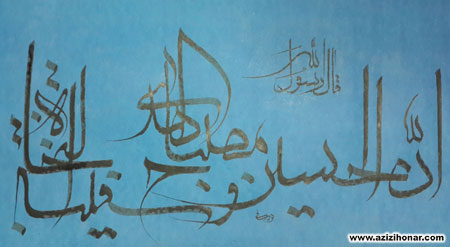 قال رسول الله
ان الحسین مصباح الهدی و سفینة النجاة
www.azizihonar.com